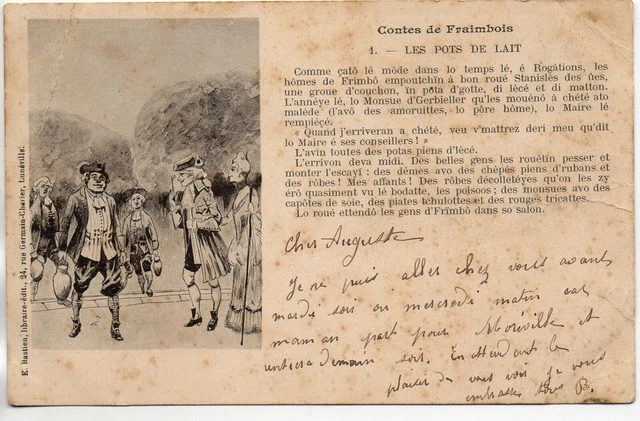 Contes de Fraimbois
1. — LES POTS DE LAIT
Comme çatô lé môde dans lo temps lé, é Rogâtions, les
hômes de Frimbô empoutchin à bon roué Stanislès des ûes,
une groue d'couchon, in pôta d'gotte, di lècé et di matton.
L'annéye lé, lo Monsue d'Gerbieller qu'les mouénô à chété ato
maléde (l'avô des amoruittes, lo pôre hôme), lo Maire lé
rempiéçé.
« Quand j'erriveran a chété, veu v'mattrez deri meu qu'dit
lo Maire é ses conseillers ! »
L'avin toutes des potas piens d'lécé.
L'errivon deva midi. Des belles gens les rouétin pesser et
monter l'escayi : des dèmes avo des chèpés piens d'rubans et
des rôbes ! Mes affants ! Des rôbes décolletéyes qu'on les zy
érô quasiment vu lè bodatte, les poisoos ; des monsues avo des
capôtes de soie, des piates tchulottes et des rouges tricattes.
Lo roué ettendô lè gens d'Frimbô dans so salon.
E. Bastien, libraire-édit., 24, rue Germain-Charier, Lunéville.
Cher Auguste
Je ne puis aller chez vous avant
mardi soir ou mercredi matin car
maman part pour Moriville et
rentrera demain soir. En attendant le
plaisir de vous voir je vous
embrasse tous B.